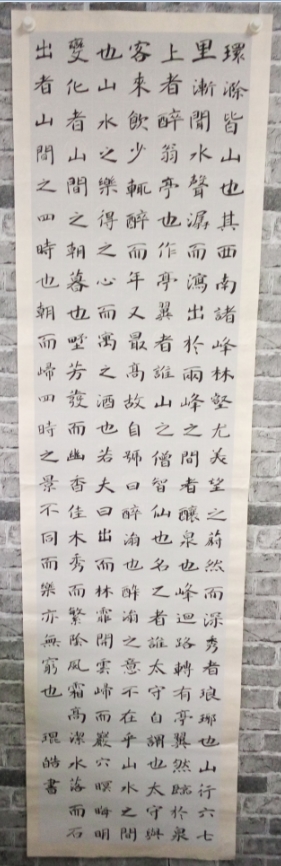 環滁皆山也其西南諸峰林壑尤美望之蔚然而深秀者琅琊也山行六七
里漸聞水聲潺而瀉出於兩峰之間者釀泉也峰迴路轉有亭翼然臨於泉
上者醉翁亭也作亭翼者誰山之僧智仙也名之者誰太守自謂也太守與
客來飲少輒醉而年又最高故自號曰醉翁也醉翁之意不在乎山水之間
也山水之樂得之心而寓之酒也若夫日出而林霏開雲歸而巖穴暝晦明
變化者山間之朝暮也野芳發而幽香佳木秀而繁陰風霜高潔水落而石
出者山間之四時也朝而歸四時之景不同而樂亦無窮也 琨皓書